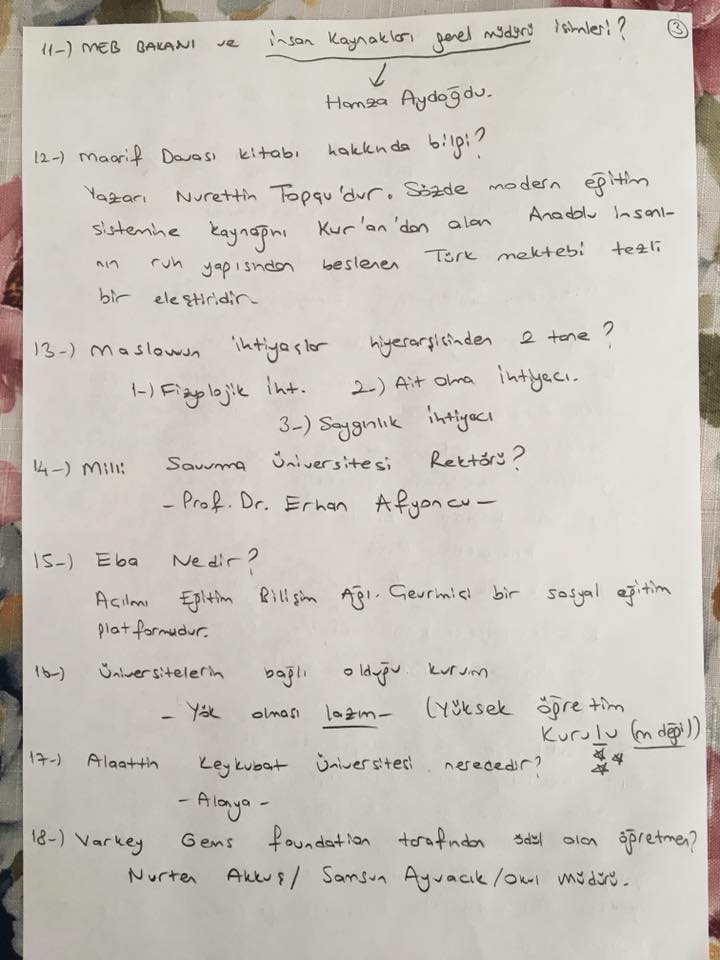 11-) MEB BAKANI ve insan kaynakları genel müdürü isimleri? ③
Hamza Aydoğdu.
12-) Maarif Davası kitabı hakkında bilgi?
Yazarı Nurettin Topçu'dur. Sözde modern eğitim
sistemine kaynağını Kur'an'dan alan Anadolu insanı-
nın ruh yapısından beslenen Türk mektebi tezli
bir eleştiridir
13-) Maslowun ihtiyaçlar hiyerarşisinden 2 tane?
1-) Fizyolojik iht. 2-) Ait olma ihtiyacı.
3-) Saygınlık ihtiyacı
14-) Milli Savunma Üniversitesi Rektörü?
- Prof. Dr. Erhan Afyoncu -
15-) Eba Nedir?
Açılmı Eğitim Bilişim Ağı. Çevrimiçi bir sosyal eğitim
platformudur.
16-) Üniversitelerin bağlı olduğu kurum
- Yök olması lazım - (Yüksek öğretim
Kurulu (m değil))
17-) Alaattin Keykubat Üniversitesi nerededir?
- Alanya -
18-) Varkey Gems foundation tarafından ödül alan öğretmen?
Nurten Akkuş / Samsun Ayvacık / Okul müdürü.